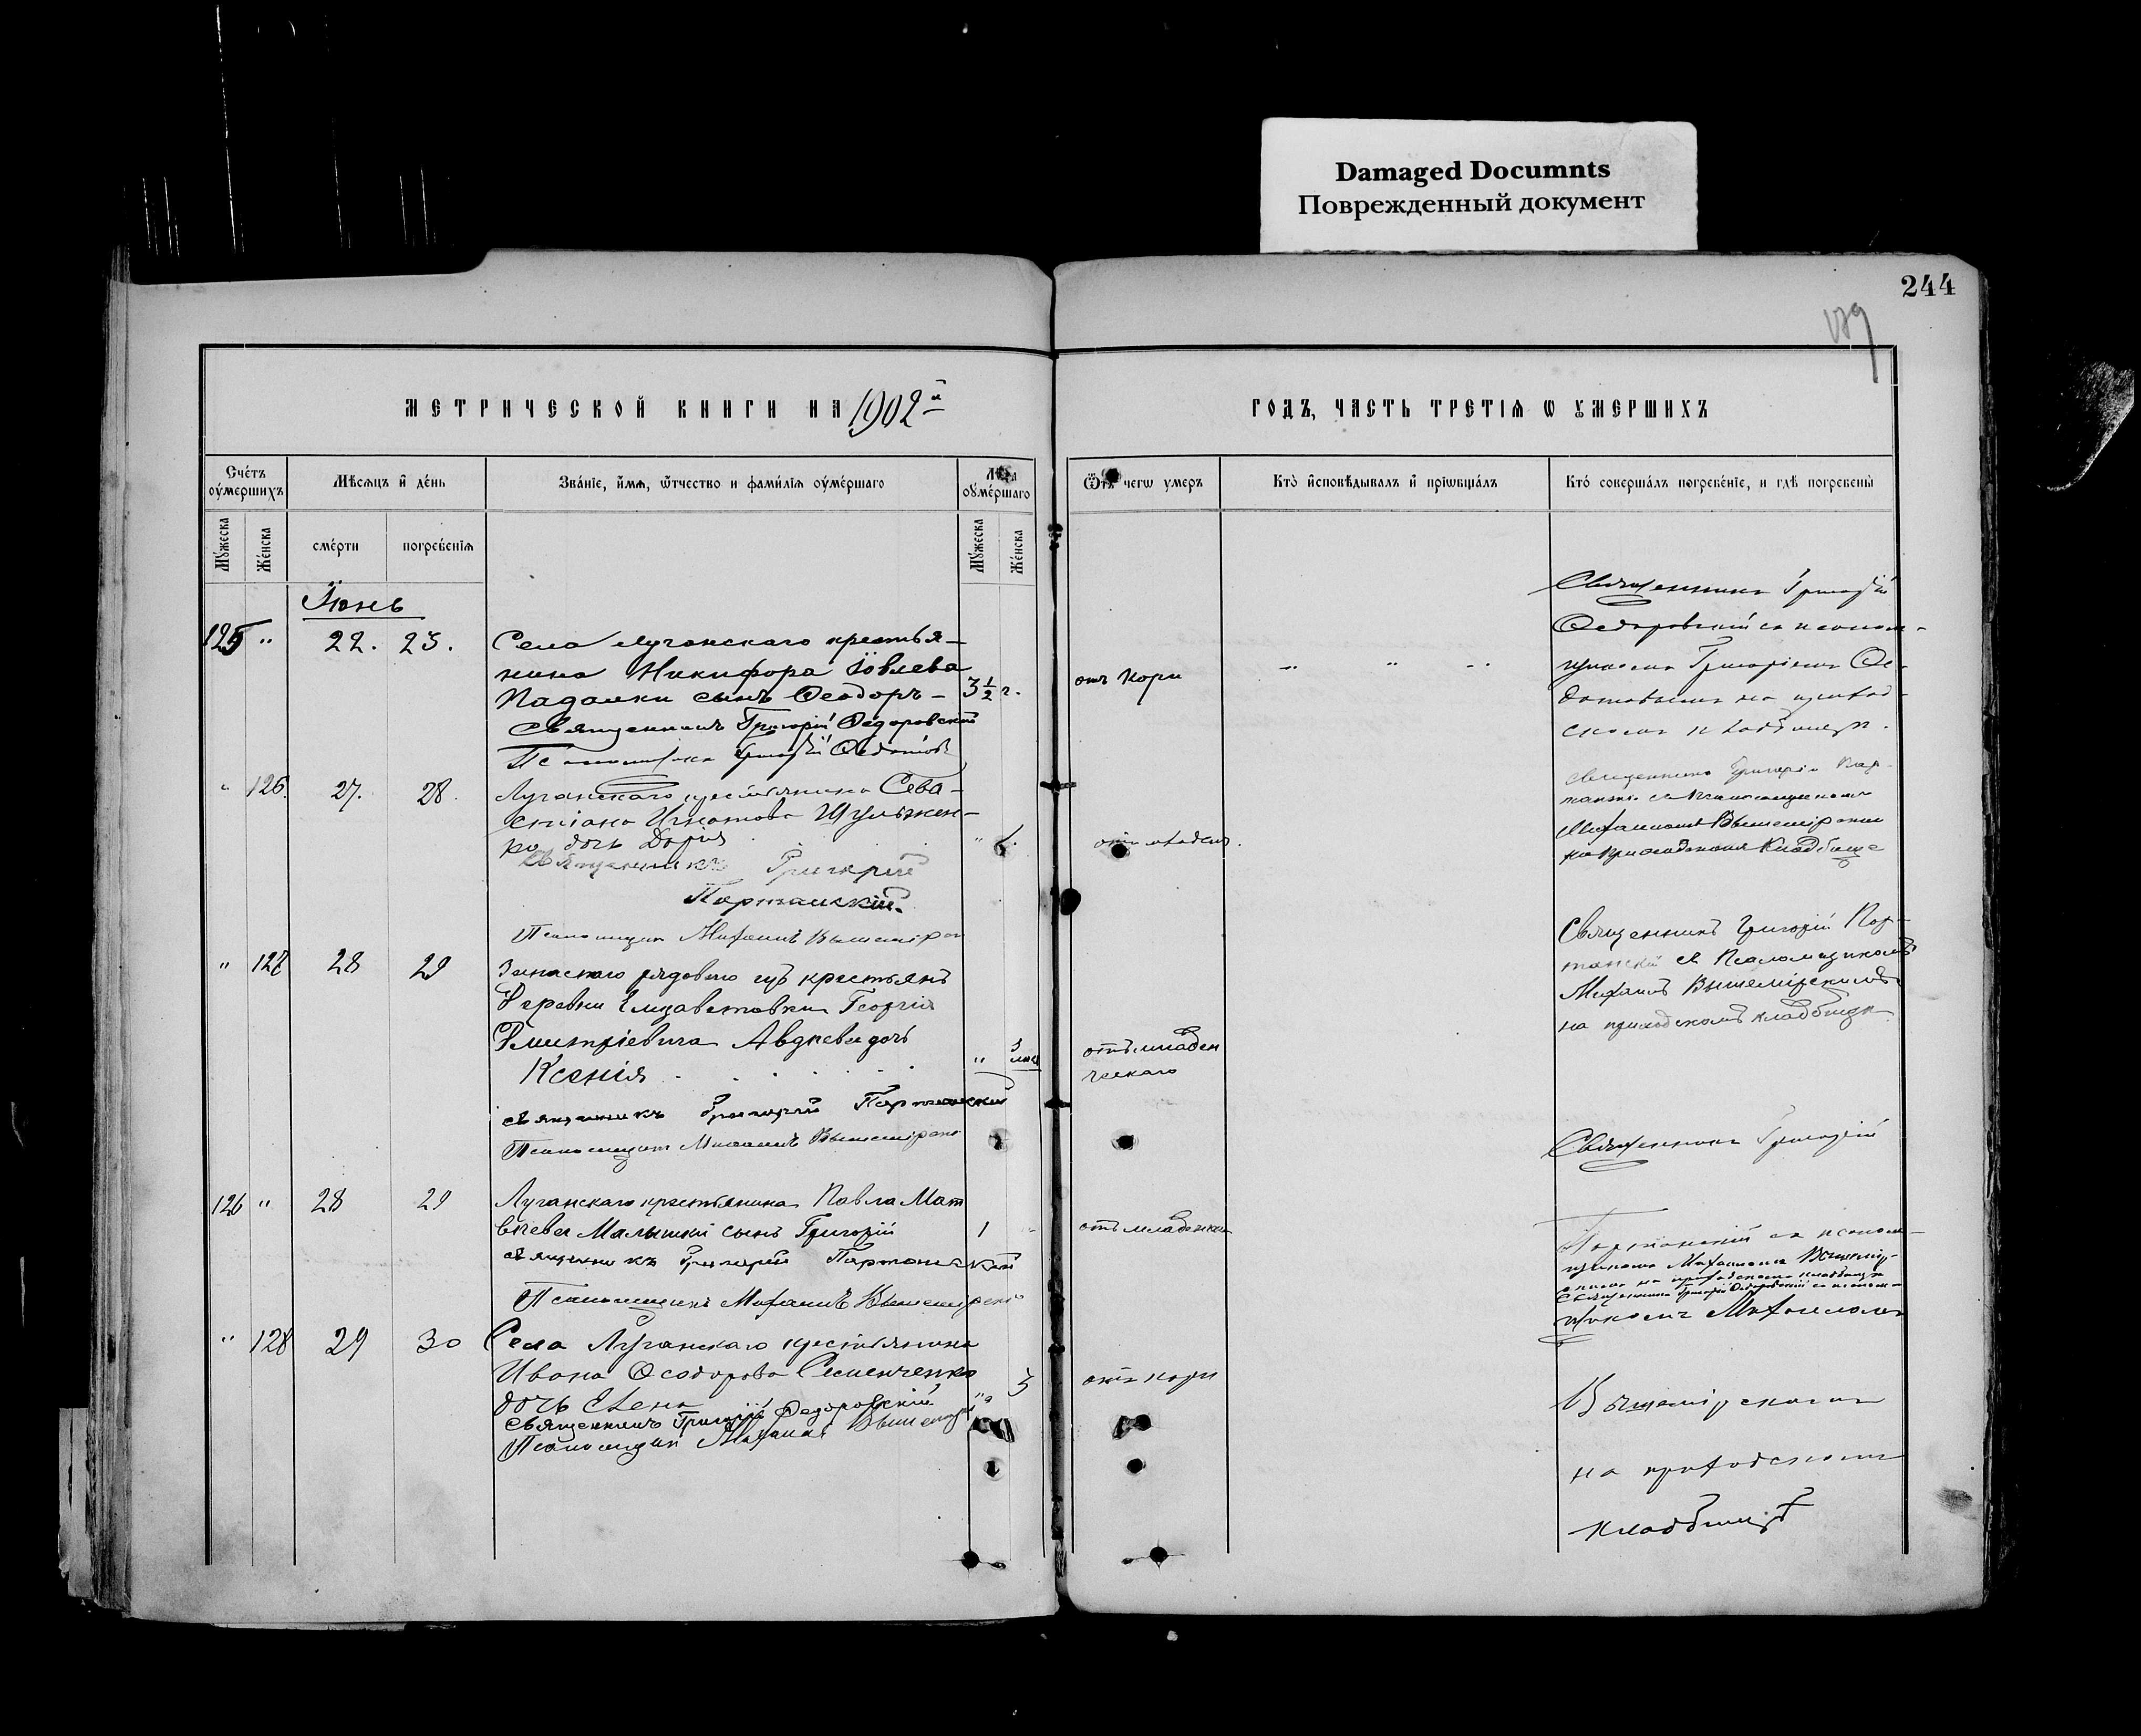 Damaged Documnts
Поврежденный документ
244
189
МЕТРИЧЕСКОЙ КНИГИ НА 1902й
ГОДЪ, ЧАСТЬ ТРЕТІѦ Ѡ ОУМЕРШИХЪ
Сче́тъ оу҆ме́ршихъ
Мѣ́сѧцъ и҆ де́нь
Зва́ніе, и҆́мѧ, ѻ҆́тчество и фами́лїѧ оу҆ме́ршаго
Лѣта оу҆ме́ршаго
Ѿ чегѡ умеръ
Кто̀ и҆сповѣ́дывалъ и҆ прїѡбща́лъ
Кто́ соверша́лъ погребе́нїе, и гдѣ̀ погребены̀
Мꙋ́жеска
Же́нска
сме́рти
погребе́нїѧ
Мꙋ́жеска
Же́нска
Іюнь
125 " 22. 23. Села Луганскаго крестья-
нина Никифора Іовлева
Падалки сынъ Ѳеодоръ - 3½ г.
Священникъ Григорій Ѳедоровскій
Псаломщикъ Григорій Ѳедотовъ
отъ кори
" " "
Священникъ Григорій
Ѳедоровскій съ псалом-
щикомъ Григоріемъ Ѳе-
дотовымъ на приход-
скомъ кладбищѣ.
" 126. 27. 28. Луганскаго крестьянина Сева-
стіана Игнатова Шульжен-
ко дочь Дарія
Священникъ Григорій
Портанскій.
Псаломщикъ Михаилъ Вышемірскій
Священникъ Григорій Пор-
танскій съ Псаломщикомъ
Михаиломъ Вышемірскимъ
на приходскомъ кладбище
" 127 28 29 Запаснаго рядового изъ крестьянъ
Деревни Елизаветовки Георгія
Дмитріевича Авдѣева дочь
Ксенія " 3 мѣс
Священникъ Григорій Портанскій
Псаломщикъ Михаилъ Вышемірскій
отъ младен
ческаго
Священникъ Григорій Пор-
танскій съ Псаломщикомъ
Михаилъ Вышемірскимъ
на приходскомъ кладбищѣ
126 " 28 29 Луганскаго крестьянина Павла Мат
вѣева Малышки сынъ Григорій 1
Священникъ Григорій Портанскій
Псаломщикъ Михаилъ Вышемірскій
Священникъ Григорій
Портанскій съ псалом-
щикомъ Михаиломъ Вышемір-
скимъ на приходскомъ кладбищѣ
" 128 29 30 Села Луганскаго крестьянина
Ивана Ѳеодорова Семенченко
дочь Елена " 3
Священникъ Григорій Ѳедоровскій
Псаломщикъ Михаилъ Вышемірскій
отъ кори
Священникъ Григорій Ѳедоровскій съ псалом-
щикомъ Михаиломъ
Вышемірскимъ
на приходскомъ
кладбищѣ